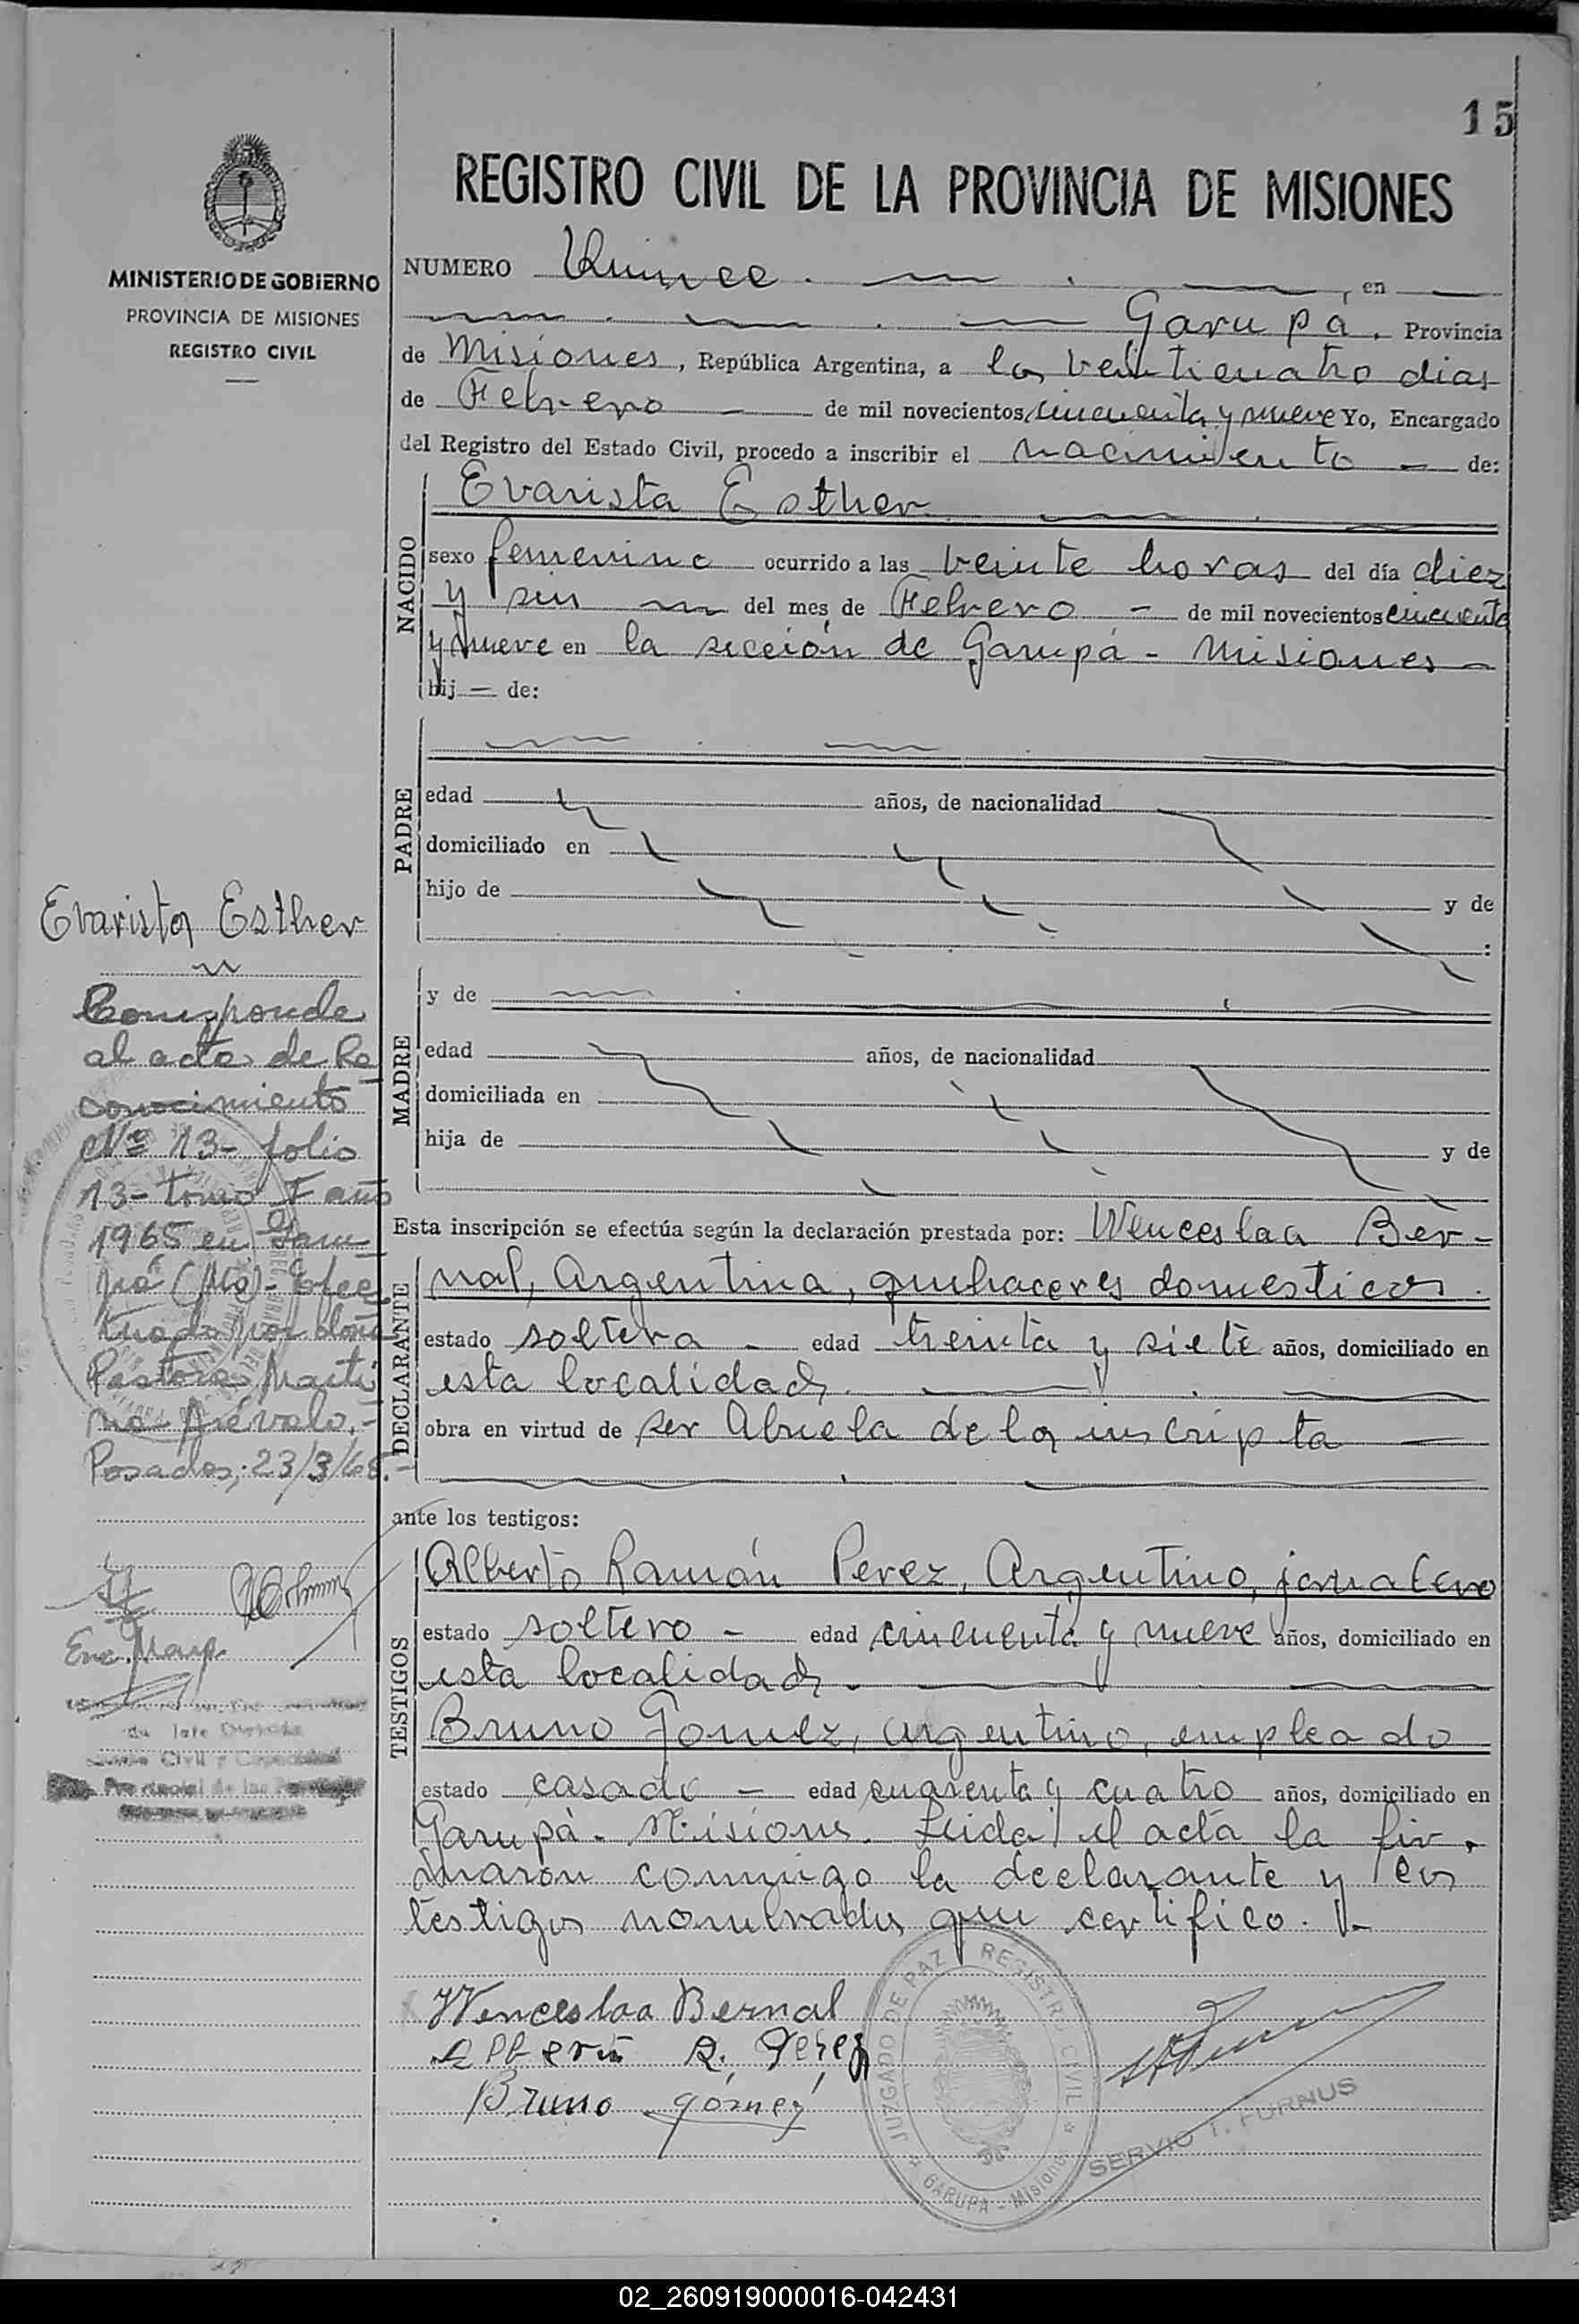 15
REGISTRO CIVIL DE LA PROVINCIA DE MISIONES
MINISTERIO DE GOBIERNO
PROVINCIA DE MISIONES
REGISTRO CIVIL
NUMERO Quince . , en
Garupá. Provincia
de Misiones, República Argentina, a los veinticuatro dias
de Febrero de mil novecientos cincuenta y nueve Yo, Encargado
del Registro del Estado Civil, procedo a inscribir el nacimiento de:
NACIDO
Evarista Esther
sexo femenino ocurrido a las veinte horas del día diez
y seis del mes de Febrero - de mil novecientos cincuenta
y nueve en la sección de Garupá - Misiones
hij — de:
PADRE
edad años, de nacionalidad
domiciliado en
hijo de y de
:
MADRE
y de
edad años, de nacionalidad
domiciliada en
hija de y de
Esta inscripción se efectúa según la declaración prestada por: Wenceslaa Ber-
DECLARANTE
nal, Argentina, quehaceres domesticos.
estado soltera - edad treinta y siete años, domiciliado en
esta localidad.
obra en virtud de ser Abuela de la inscripta
ante los testigos:
TESTIGOS
Alberto Ramón Perez, Argentino, jornalero
estado soltero - edad cincuenta y nueve años, domiciliado en
esta localidad.
Bruno Gomez, argentino, empleado
estado casado - edad cuarenta y cuatro años, domiciliado en
Garupá - Misiones. Leida el acta la fir-
maron conmigo la declarante y los
testigos nombrados que certifico.
Wenceslaa Bernal
Alberto R. Pérez
Bruno Gómez
JUZGADO DE PAZ REGISTRO CIVIL
GARUPA - Misiones
SERVIO T. FURNUS
Evarista Esther
Corresponde
al acta de Re
conocimiento
Nº 13- folio
13- tomo I año
1965 en Garu
pá (Ms)- Efec
tuado por doña
Pastora Marti
na Arévalo.-
Posadas, 23/3/68.-
02_260919000016-042431